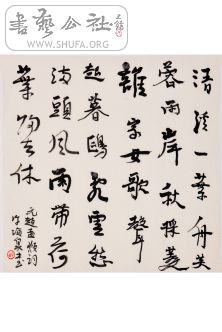 書藝公社
WWW.SHUFA.ORG
清溪一葉舟芙
蓉兩岸秋採菱
誰家女歌聲
起暮鷗亂雲愁
滿頭風雨帶荷
葉歸去休
元趙孟頫詞